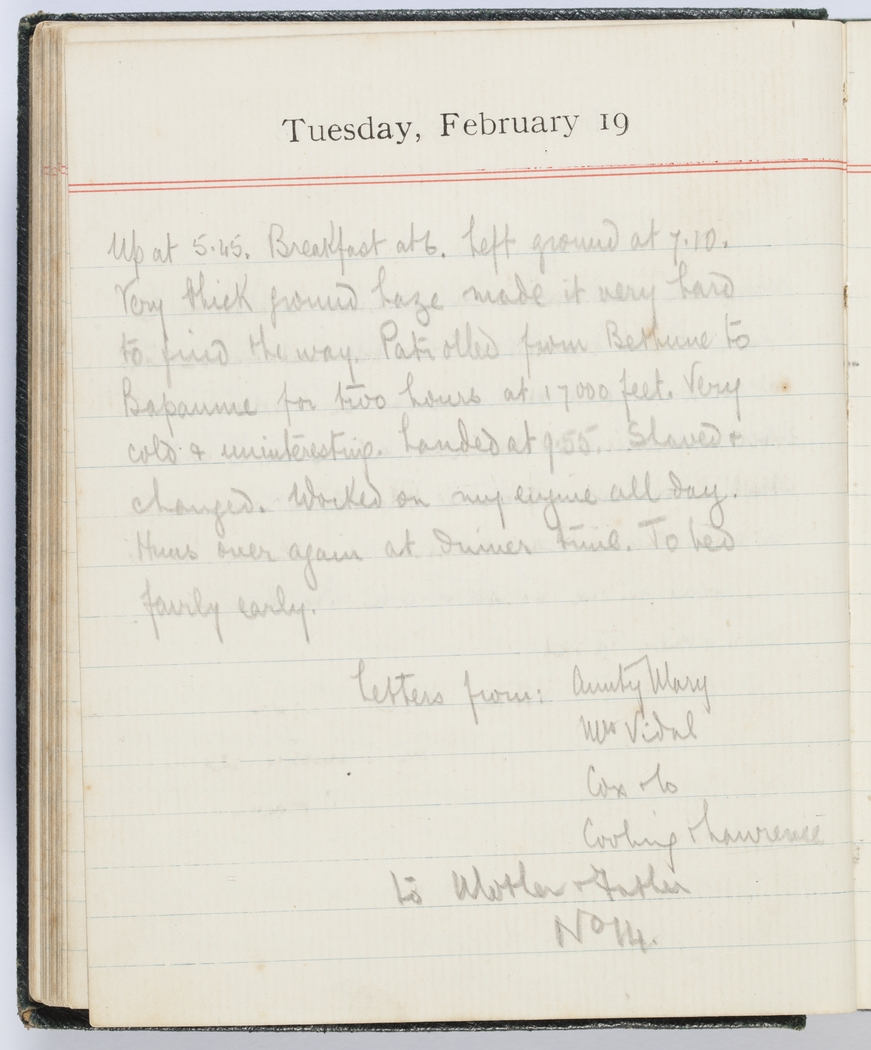 Tuesday, February 19
Up at 5.45. Breakfast at 6. Left ground at 7.10.
Very thick ground haze made it very hard
to find the way. Patrolled from Bethune to
Bapaume for two hours at 17000 feet. Very
cold & uninteresting. Landed at 9.55. Shaved &
changed. Worked on my engine all day.
Huns over again at dinner time. To bed
fairly early.
Letters from: Aunty Mary
Mrs Vidal
Cox & Co
Cooling & Lawrence
to Mother & Father
No 14.